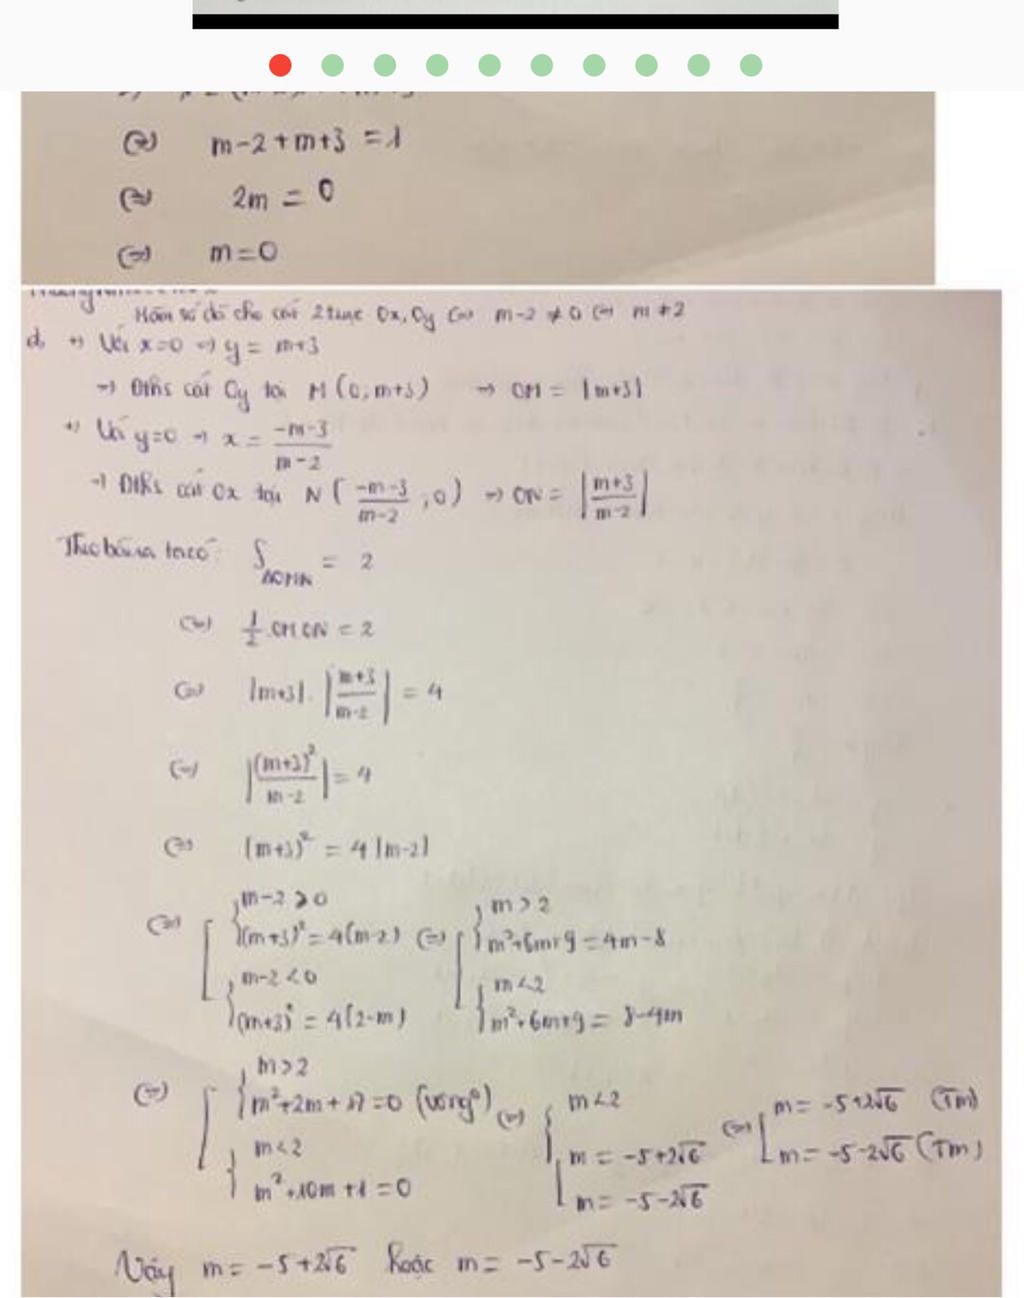 (=) m-2+m+3 = 1
(=) 2m = 0
(=) m=0
Hàm số đã cho cắt 2 trục Ox, Oy (=) m-2 ≠ 0 (=) m ≠ 2
d, +) Với x=0 => y = m+3
=> Đths cắt Oy tại M (0; m+3) => OM = |m+3|
+) Với y=0 => x = \frac{-m-3}{m-2}
=> Đths cắt Ox tại N ( \frac{-m-3}{m-2} ; 0 ) => ON = | \frac{m+3}{m-2} |
Theo bài ra ta có: S_{ΔOMN} = 2
(=) \frac{1}{2} . OM.ON = 2
(=) |m+3| . | \frac{m+3}{m-2} | = 4
(=) | \frac{(m+3)^2}{m-2} | = 4
(=) (m+3)^2 = 4 |m-2|
(=) [ { m-2 > 0 (=) [ { m > 2
(m+3)^2 = 4(m-2) m²+6m+9 = 4m-8
{ m-2 < 0 { m < 2
(m+3)^2 = 4(2-m) m²+6m+9 = 8-4m
(=) [ { m > 2
m²+2m+17 = 0 (vô ng°) (=) { m < 2 (=) [ m = -5+2√6 (Tm)
{ m < 2 [ m = -5+2√6 m = -5-2√6 (Tm)
m²+10m+1 = 0 m = -5-2√6
Vậy m = -5+2√6 hoặc m = -5-2√6